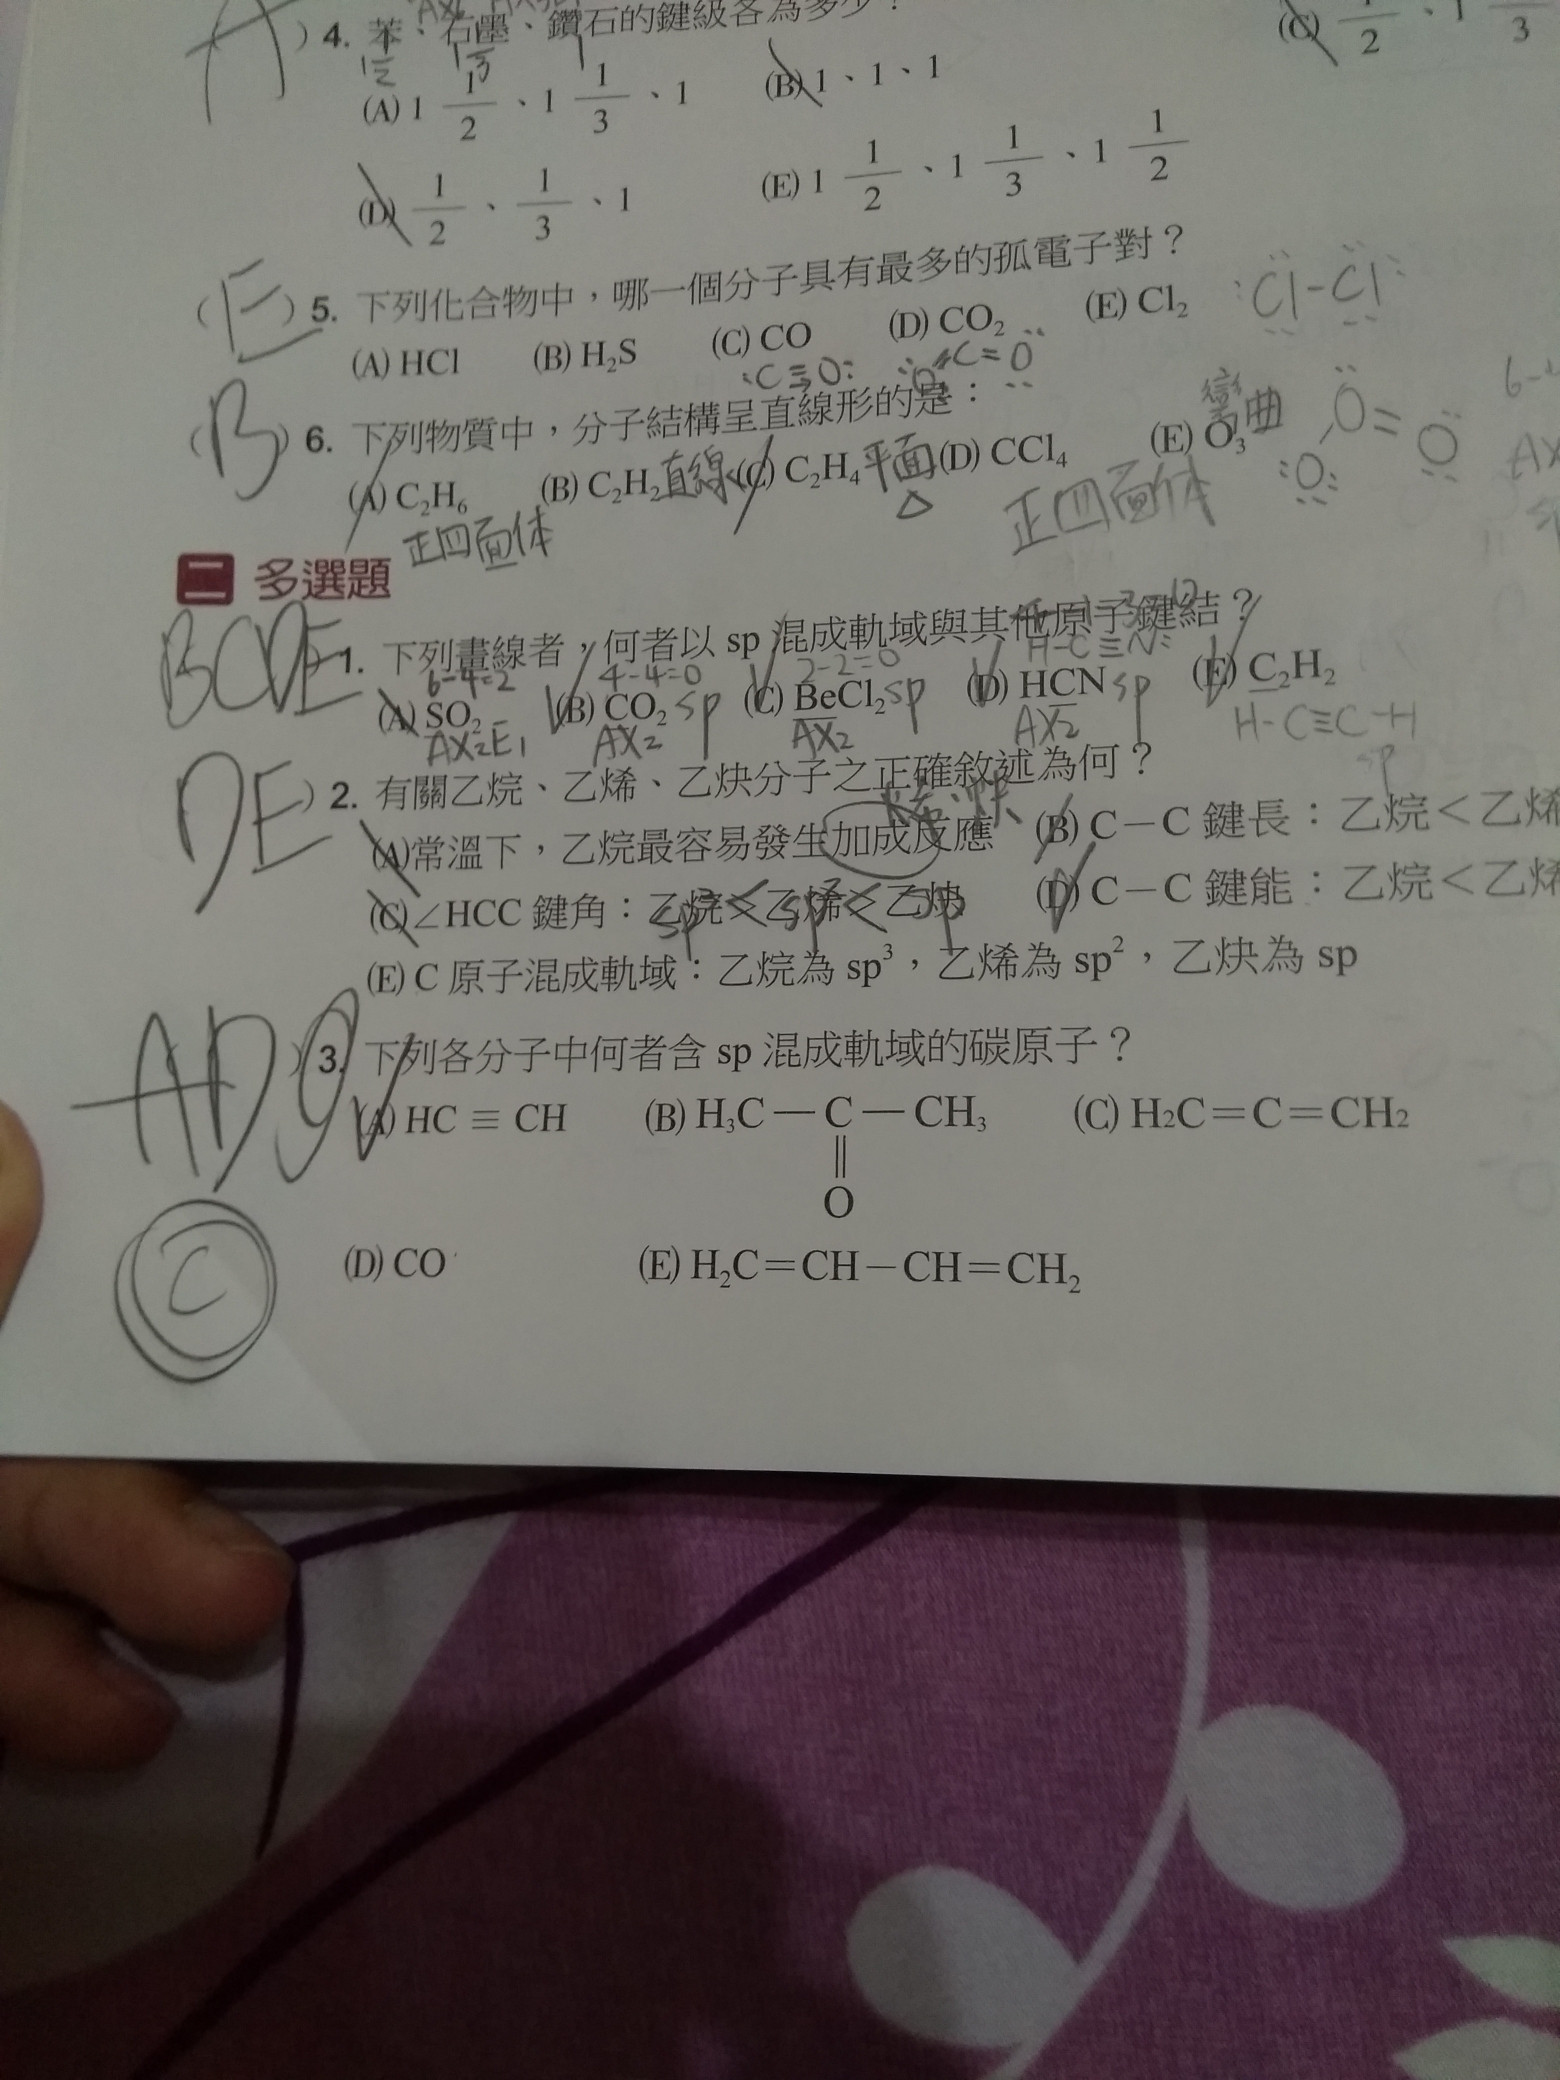 A ) 4. 苯、石墨、鑽石的鍵級各為多少?
(A) 1 1/2 、1 1/3 、1 (B) 1、1、1 (C) 1/2 、1
(D) 1/2 、 1/3 、1 (E) 1 1/2 、1 1/3 、1 1/2
( E ) 5. 下列化合物中,哪一個分子具有最多的孤電子對? :Cl-Cl:
(A) HCl (B) H2S (C) CO (D) CO2 (E) Cl2
:C≡O: C=O
( B ) 6. 下列物質中,分子結構呈直線形的是:
(A) C2H6 (B) C2H2 直線 (C) C2H4 平面 (D) CCl4 (E) O3 彎曲
正四面体 △ 正四面体
二 多選題
BCDE 1. 下列畫線者,何者以 sp 混成軌域與其他原子鍵結?
6-4=2 4-4=0 2-2=0 H-C≡N:
(A) SO2 (B) CO2 sp (C) BeCl2 sp (D) HCN sp (E) C2H2
AX2E1 AX2 AX2 AX2 H-C≡C-H
sp
DE ) 2. 有關乙烷、乙烯、乙炔分子之正確敘述為何?
(A)常溫下,乙烷最容易發生加成反應 (B) C－C 鍵長:乙烷＜乙烯
(C)∠HCC 鍵角:乙烷＜乙烯＜乙炔 (D) C－C 鍵能:乙烷＜乙烯
sp3 < sp2 < sp
(E) C 原子混成軌域:乙烷為 sp3,乙烯為 sp2,乙炔為 sp
AD ) 3. 下列各分子中何者含 sp 混成軌域的碳原子?
(A) HC ≡ CH (B) H3C — C — CH3 (C) H2C＝C＝CH2
‖
O
C
(D) CO (E) H2C＝CH－CH＝CH2